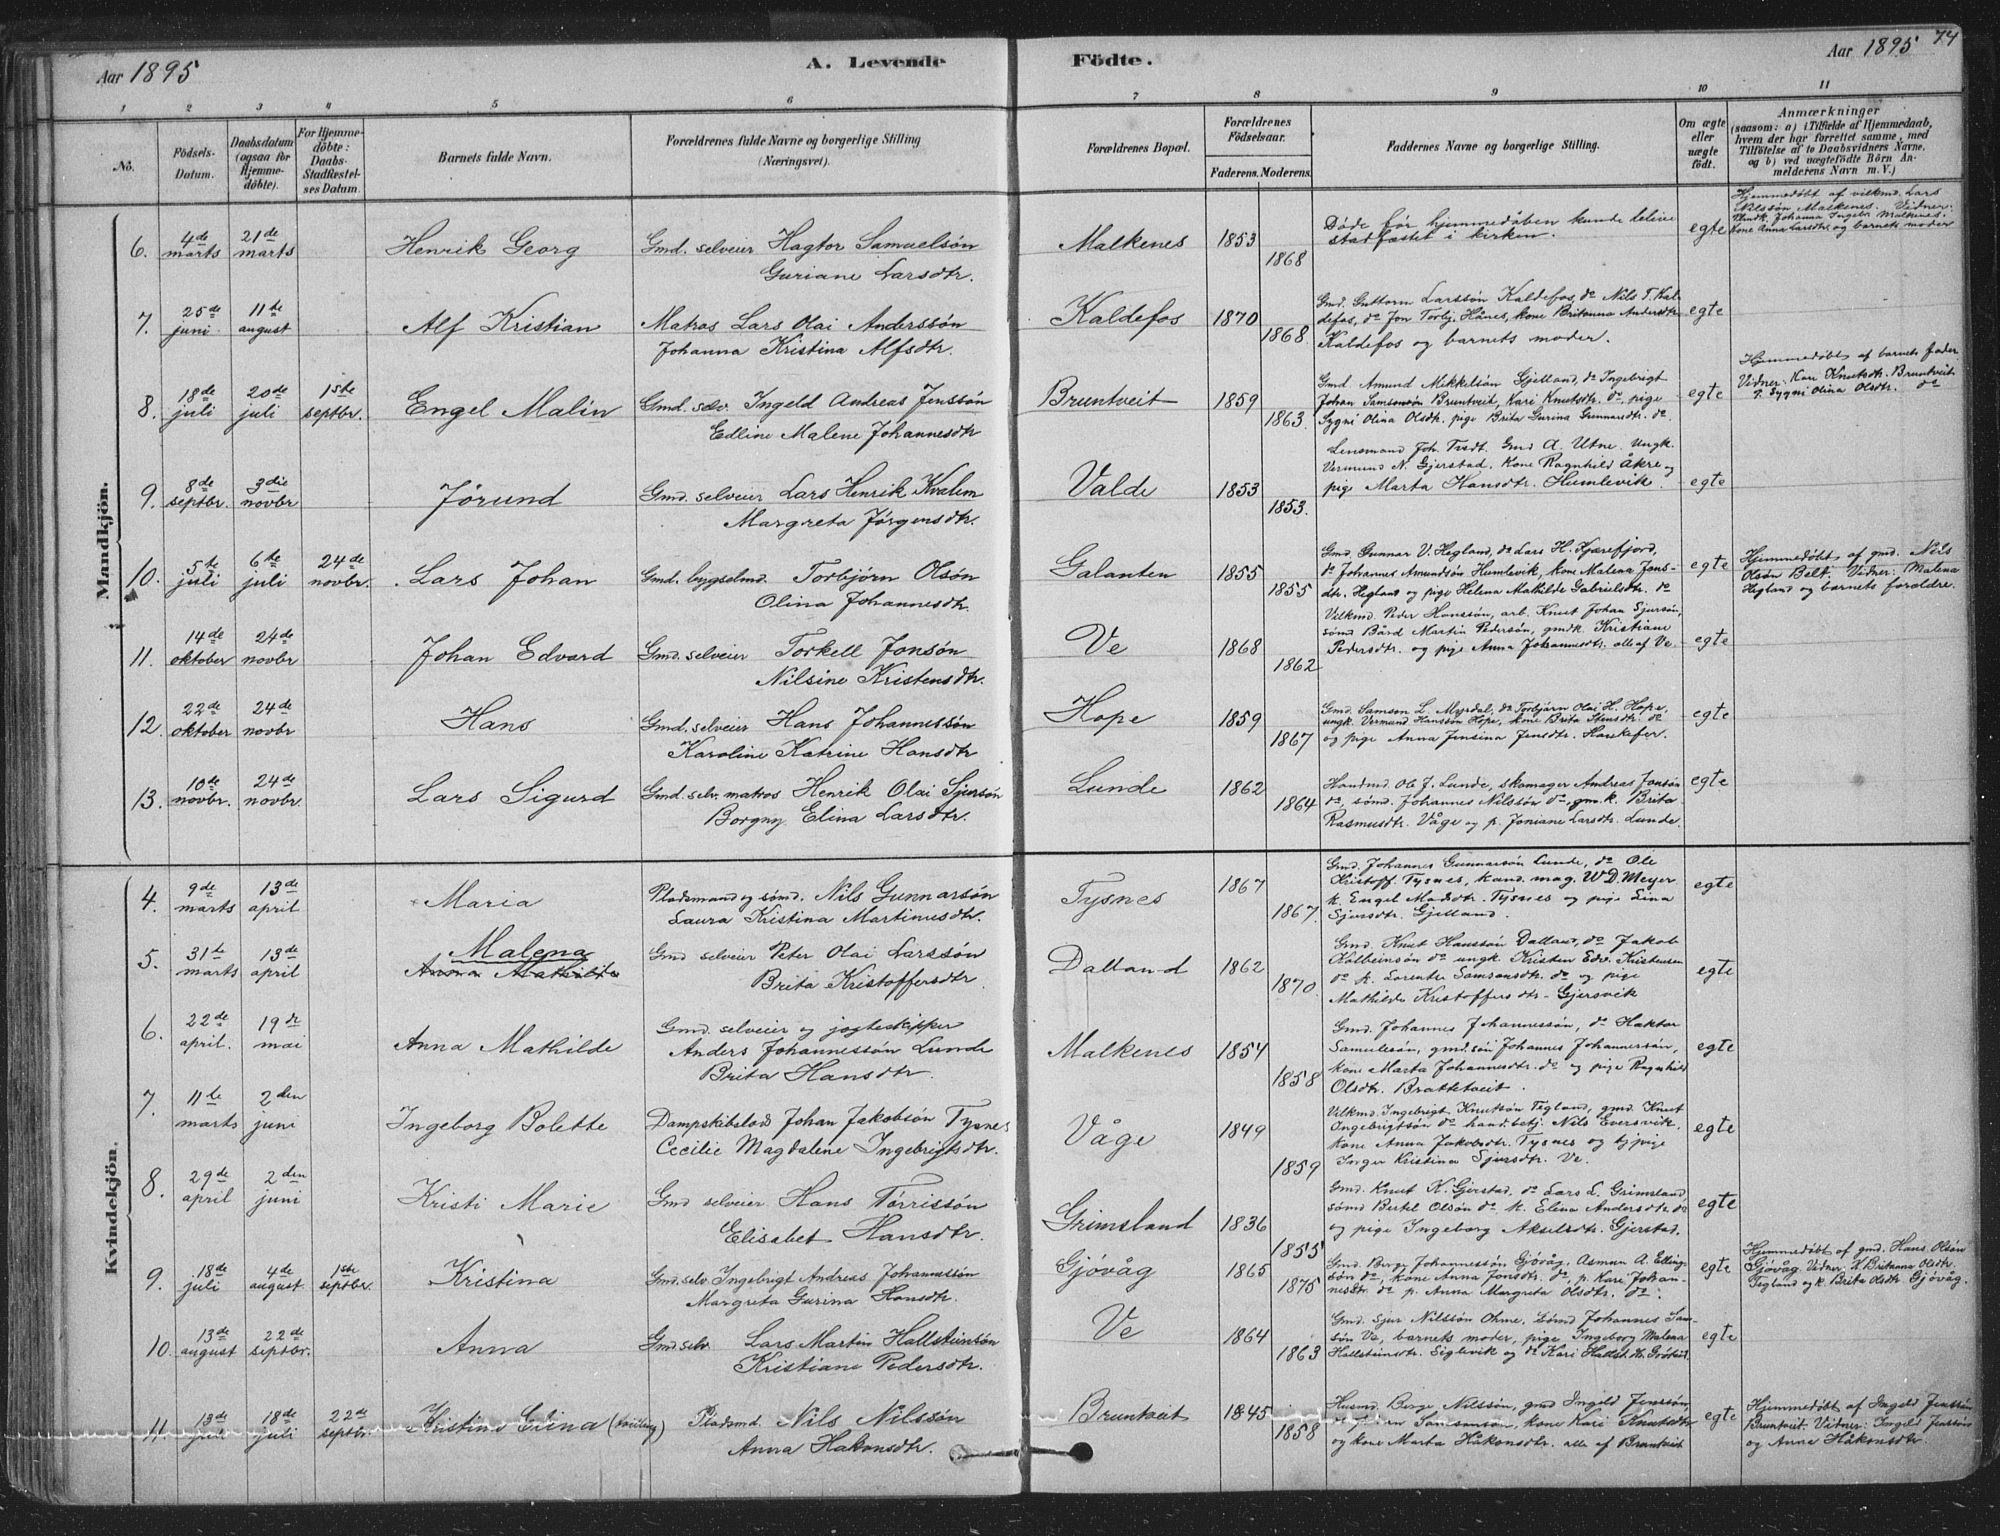 Aar 1895 A. Levende Födte. Aar 1895 74
1 2 3 4 5 6 7 8 9 10 11
No. Födsels-Datum. Daabsdatum (ogsaa for Hjemmedöbte). For Hjemmedöbte: Daabs-Stadfæstelses Datum. Barnets fulde Navn. Forældrenes fulde Navne og borgerlige Stilling (Næringsvei). Forældrenes Bopæl. Forældrenes Födselsaar. Faderens. Moderens. Faddernes Navne og borgerlige Stilling. Om ægte eller uægte födt. Anmærkninger (saasom: a) i Tilfælde af Hjemmedaab, hvem der har forrettet samme, med Tilföielse af to Daabsvidners Navne. og b) ved uægtefödte Börn Anmelderens Navn m. V.)
Mandkjön.
6. 4de marts 21de marts Henrik Georg Gmd. selveier Hagtor Samuelsön
Guriane Larsdtr.
Malkenes 1853 1868
Døde før hjemmedåben kunde blive
stadfæstet i kirken.
egte
Hjemmedøbt af vilkmd. Lars
Nilssön Malkenes. Vidner:
Johanna Ingebr. Malkenes.
kone Anna Larsdtr. og barnets moder
7. 25de juni 11te august Alf Kristian Matros Lars Olai Anderssön
Johanna Kristina Alfsdtr.
Kaldefos 1870 1868
Gmd. Guttorm Larssön Kaldefos, do Nils T. Kal-
defos, do Jon Torbj. Hånes, kone Britanna Andersdtr
Kaldefos og barnets moder.
egte
8. 18de juli 20de juli 1ste septbr. Engel Malin Gmd. selv. Ingeld Andreas Jenssön
Edline Malene Johannesdtr
Bruntveit 1859 1863
Gmd Amund Mikkelsön Gjelland, do Ingebrigt
Johan Samsonsön Bruntveit, Kari Knutsdtr. do, pige
Sygni Olina Olsdtr. pige Brita Gurina Gunnarsdtr. do
egte
Hjemmedøbt af barnets fader
Vidner: Kari Knutsdtr. Bruntveit
p. Sygni Olina Olsdtr. do
9. 8de septbr. 3die novbr Jørund Gmd. selveier Lars Henrik Kvalem
Margreta Jørgensdtr.
Valde 1853 1853.
Lensmand Joh. Tvedt. Gmd A. Utne. Ungk.
Vermund N. Gjerstad. Kone Ragnhild Åkre og
pige Marta Hansdtr. Humlevik.
egte
10. 5te juli 6te juli 24de novbr. Lars Johan Gmd. bygselmd. Torbjörn Olsön
Olina Johannesdtr.
Galanten 1855 1855
Gmd. Gunnar V. Hegland, do Lars H. Kjærefjord,
do Johannes Amundsön Humlevik, kone Malena Jons-
dtr. Hegland og pige Helena Mathilde Gabrielsdtr. do
egte
Hjemmedøbt af gmd. Nils
Olsön Belt. Vidner: Malena
Hegland og barnets forældre.
11. 14de oktober 24de novbr Johan Edvard Gmd. selveier Torkell Jonsön
Nilsine Kristensdtr.
Ve 1868 1862
Vilkmd. Peder Hanssön, arb. Knut Johan Sjursön,
sømd Bård Martin Pedersön, gmdk. Kristiane
Pedersdtr. og pige Anna Johannesdtr. alle af Ve
egte
12. 22de oktober 24de novbr Hans Gmd. selveier Hans Johannessön
Karoline Katrine Hansdtr
Hope 1859 1867
Gmd. Samson L. Myrdal, do Torbjörn Olai H. Hope,
ungk. Vermund Hanssön Hope, kone Brita Stensdtr. do
og pige Anna Jensina Jensdtr. Haukefer.
egte
13. 10de novbr. 24de novbr. Lars Sigurd Gmd. selv. matros Henrik Olai Sjursön
Borgny Elina Larsdtr.
Lunde 1862 1864
Handmd Ole J. Lunde, skomager Andreas Jonsön
do, sømd. Johannes Nilssön do, gm. k. Brita
Rasmusdtr. Våge og p. Joniane Larsdtr. Lunde.
egte
Kvindekjön.
4. 9de marts 13de april Maria Pladsmand og sømd. Nils Gunnarsön
Laura Kristina Martinusdtr.
Tysnes 1867 1867
Gmd. Johannes Gunnarsön Lunde, do Ole
Kristoff. Tysnes, kand. mag. W. D. Meyer
k. Engel Madsdtr. Tysnes og pige Lina
Sjursdtr. Gjelland.
egte
5. 31te marts 13de april Malena
Anna Mathilde
Gmd selveier Peter Olai Larssön
Brita Kristoffersdtr
Dalland 1862 1870
Gmd. Knut Hanssön Dalland, do Jakob
Kolbeinsön do ungk. Kristen Edv. Kristensen
do k. Lorentse Samsonsdtr. do og pige
Mathilde Kristoffersdtr - Gjersvik
egte
6. 22de april. 19de mai Anna Mathilde Gmd. selveier og jagteskipper
Anders Johannessön Lunde
Brita Hansdtr.
Malkenes 1854 1858
Gmd. Johannes Johannessön, do Haktor
Samuelsön, gmd. sön Johannes Johannessön,
kone Marta Johannesdtr. do og pige Ragnhild
Olsdtr. Brattetveit.
egte
7. 11te marts 2den juni Ingeborg Bolette Dampskibslods Johan Jakobsön Tysnes
Cecilie Magdalene Ingebrigtsdtr.
Våge 1849 1859
Vilkmd. Ingebrigt Knutsön Tegland, gmd. Knut
Ingebrigtsön do handbetj. Nils Eversvik,
kone Anna Jakobsdtr. Tysnes og tjpige
Inger Kristina Sjursdtr. Ve.
egte
8. 29de april 2den juni Kristi Marie Gmd selveier Hans Törrissön
Elisabet Hansdtr.
Grimsland 1836 1855
Gmd. Knut K. Gjerstad, do Lars L. Grimsland,
sømd Bertel Olsön do k. Elena Andersdtr do
og pige Ingeborg Akselsdtr. Gjerstad.
egte
9. 18de juli 4de august 1ste septbr Kristina Gmd. selv. Ingebrigt Andreas Johannessön
Margreta Gurina Hansdtr.
Gjövåg 1865 1875
Gmd. Berge Johannessön Gjövåg, Asman A. Elling-
sön do, kone Anna Jonsdtr. do, p. Kari Johan-
nesdtr. do p. Anna Margreta Olsdtr. do.
egte
Hjemmedöbt af gmd. Hans Olsön
Gjövåg. Vidner: K. Britana Olsdtr.
Tegland og k. Brita Olsdtr Gjövåg.
10. 13de august 22de septbr. Anna Gmd. selv. Lars Martin Hallsteinsön
Kristiane Pedersdtr.
Ve 1864 1863
Gmd. Sjur Nilssön Ohme, sømd Johannes Sam-
sön Ve, barnets moder, pige Ingeborg Malena
Hallsteinsdtr. Siglevik og do Kari Hallst.
egte
11. 13de juli 18de juli 22de septbr Kristine Elina (tvilling) Pladsmd. Nils Nilssön
Anna Håkonsdtr.
Bruntveit 1845 1858
Husmd. Berge Nilssön, gmd Ingeld Jenssön,
Samsonsön, kone Kari Knutsdtr
og kone Marta Håkonsdtr. alle af Bruntveit
egte
Hjemmedöbt af Ingeld Jenssön
Bruntveit. Vidner: Ingeld Jenssön
og Anna Håkonsdtr.